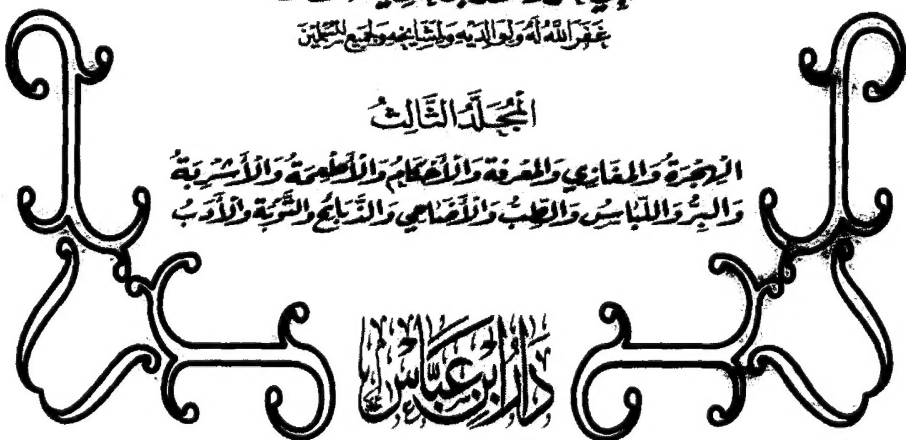 غَفَرَ اللَّهُ لَهُ وَلِوَالِدَيْهِ وَلِمَشَايِخِهِ وَلِجَمِيعِ المُسْلِمِينَ
المُجَلَّدُ الثَّالِثُ
الْهِجْرَةُ وَالْمَغَازِي وَالْمَعْرِفَة وَالْأَحْكَامُ وَالْأَطْعِمَةُ وَالْأَشْرِبَةُ
وَالبِرُّ وَاللِّبَاسُ وَالطِّبُّ وَالْأَضَاحِي وَالذَّبَائِحُ وَالتَّوْبَةُ وَالْأَدَبُ
دَارُ ابْنِ عَبَّاس